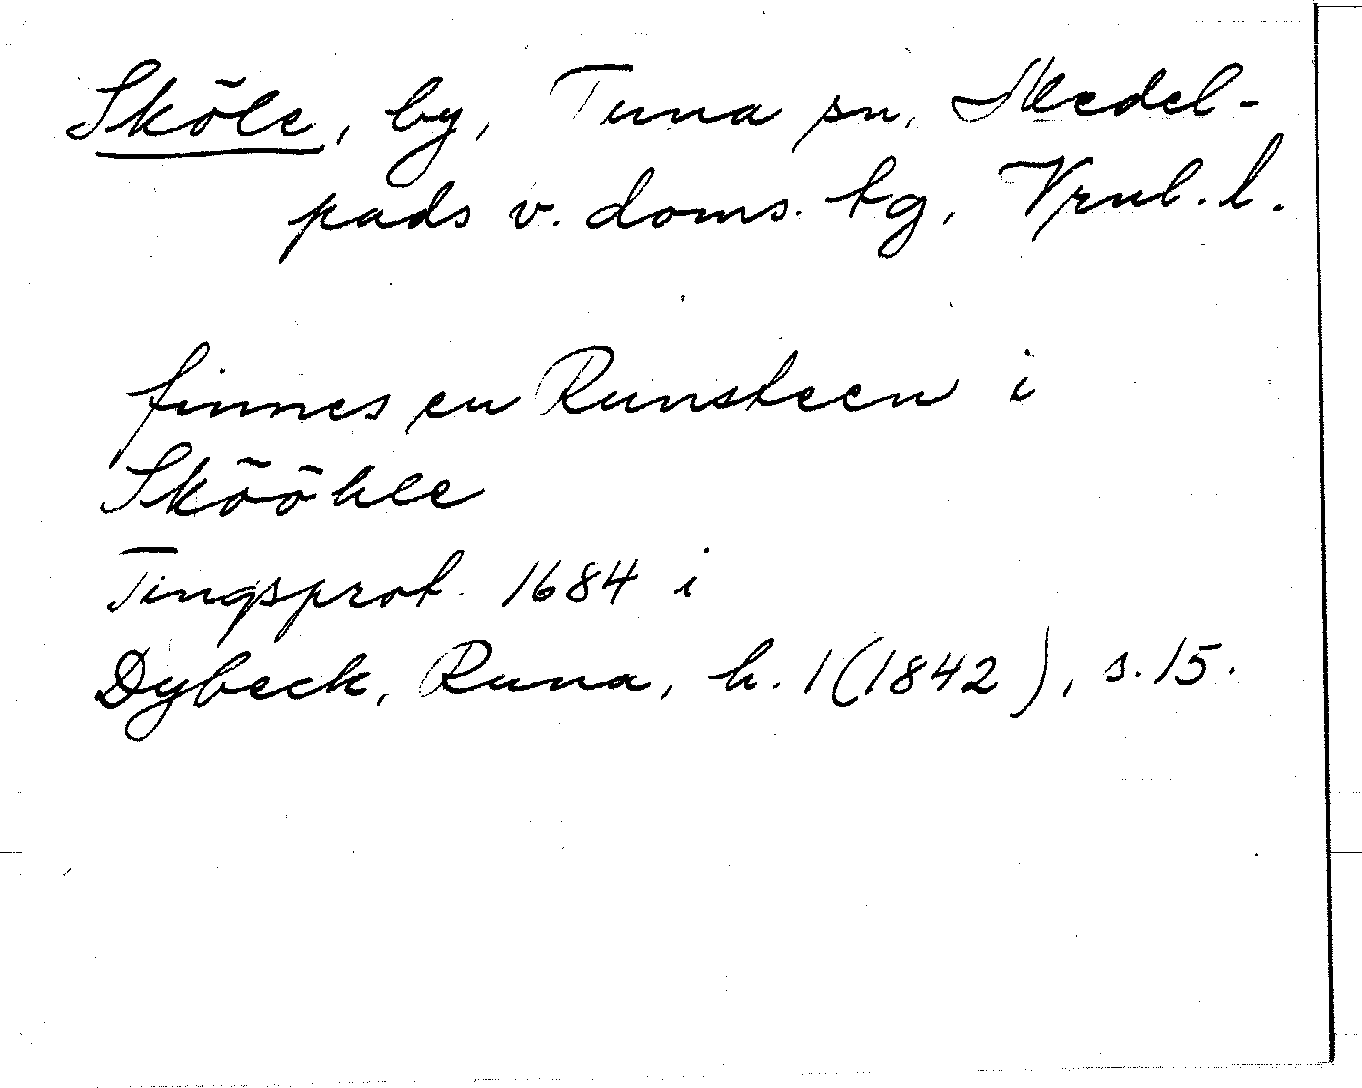 Sköle, by, Tuna sn, Medel-
pads v. doms. tg, Vrnl. l.
finnes en Runsteen i
Skööhle
Tingsprot. 1684 i
Dybeck, Runa, h. 1 (1842), s. 15.